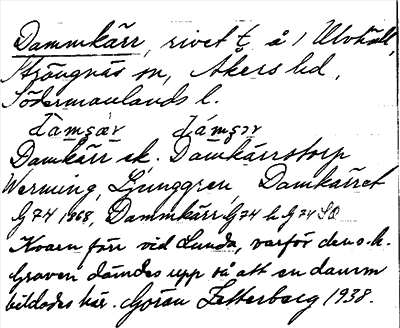 Dammkärr, rivet t. å 1 Ulvhäll,
Strängnäs sn, Åkers hd,
Södermanlands l.
damçær dámçær
Damkärr ek. Damkärrstorp
Werming, Ljunggren, Damkärret
G 74 1868, Dammkärr G 74 h. G 74 SO
Kvarn förr vid Lunda, varför den s.k.
Graven dämdes upp så att en damm
bildades här. Göran Zetterberg 1938.